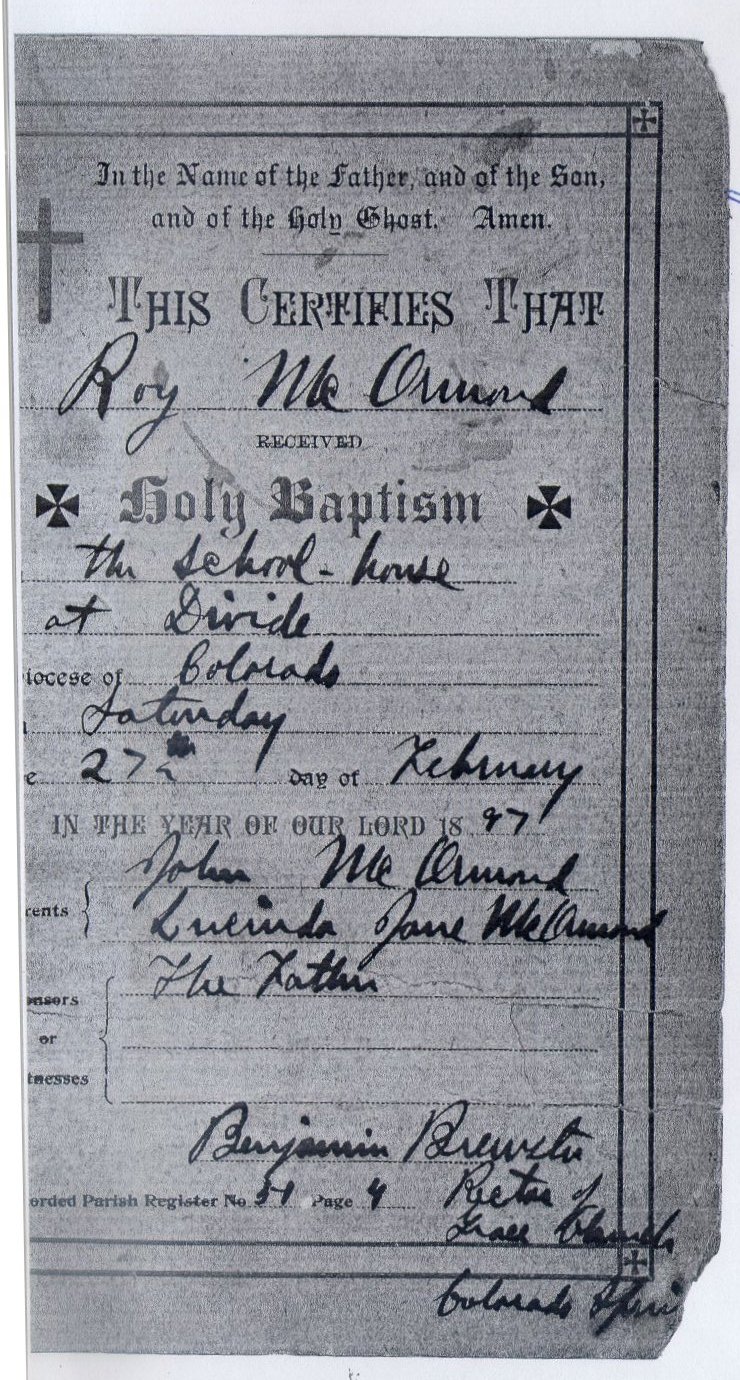 In the Name of the Father, and of the Son,
and of the Holy Ghost. Amen.
THIS CERTIFIES THAT
Roy McOrmond
RECEIVED
Holy Baptism
the School-house
at Divide
iocese of Colorado
Saturday
e 27th day of February
IN THE YEAR OF OUR LORD 18 97
John McOrmond
rents
Lucinda Jane McOrmond
The Father
onsors
or
tnesses
Benjamin Brewster
orded Parish Register No 51 Page 4 Rector of
Grace Church
Colorado Spri